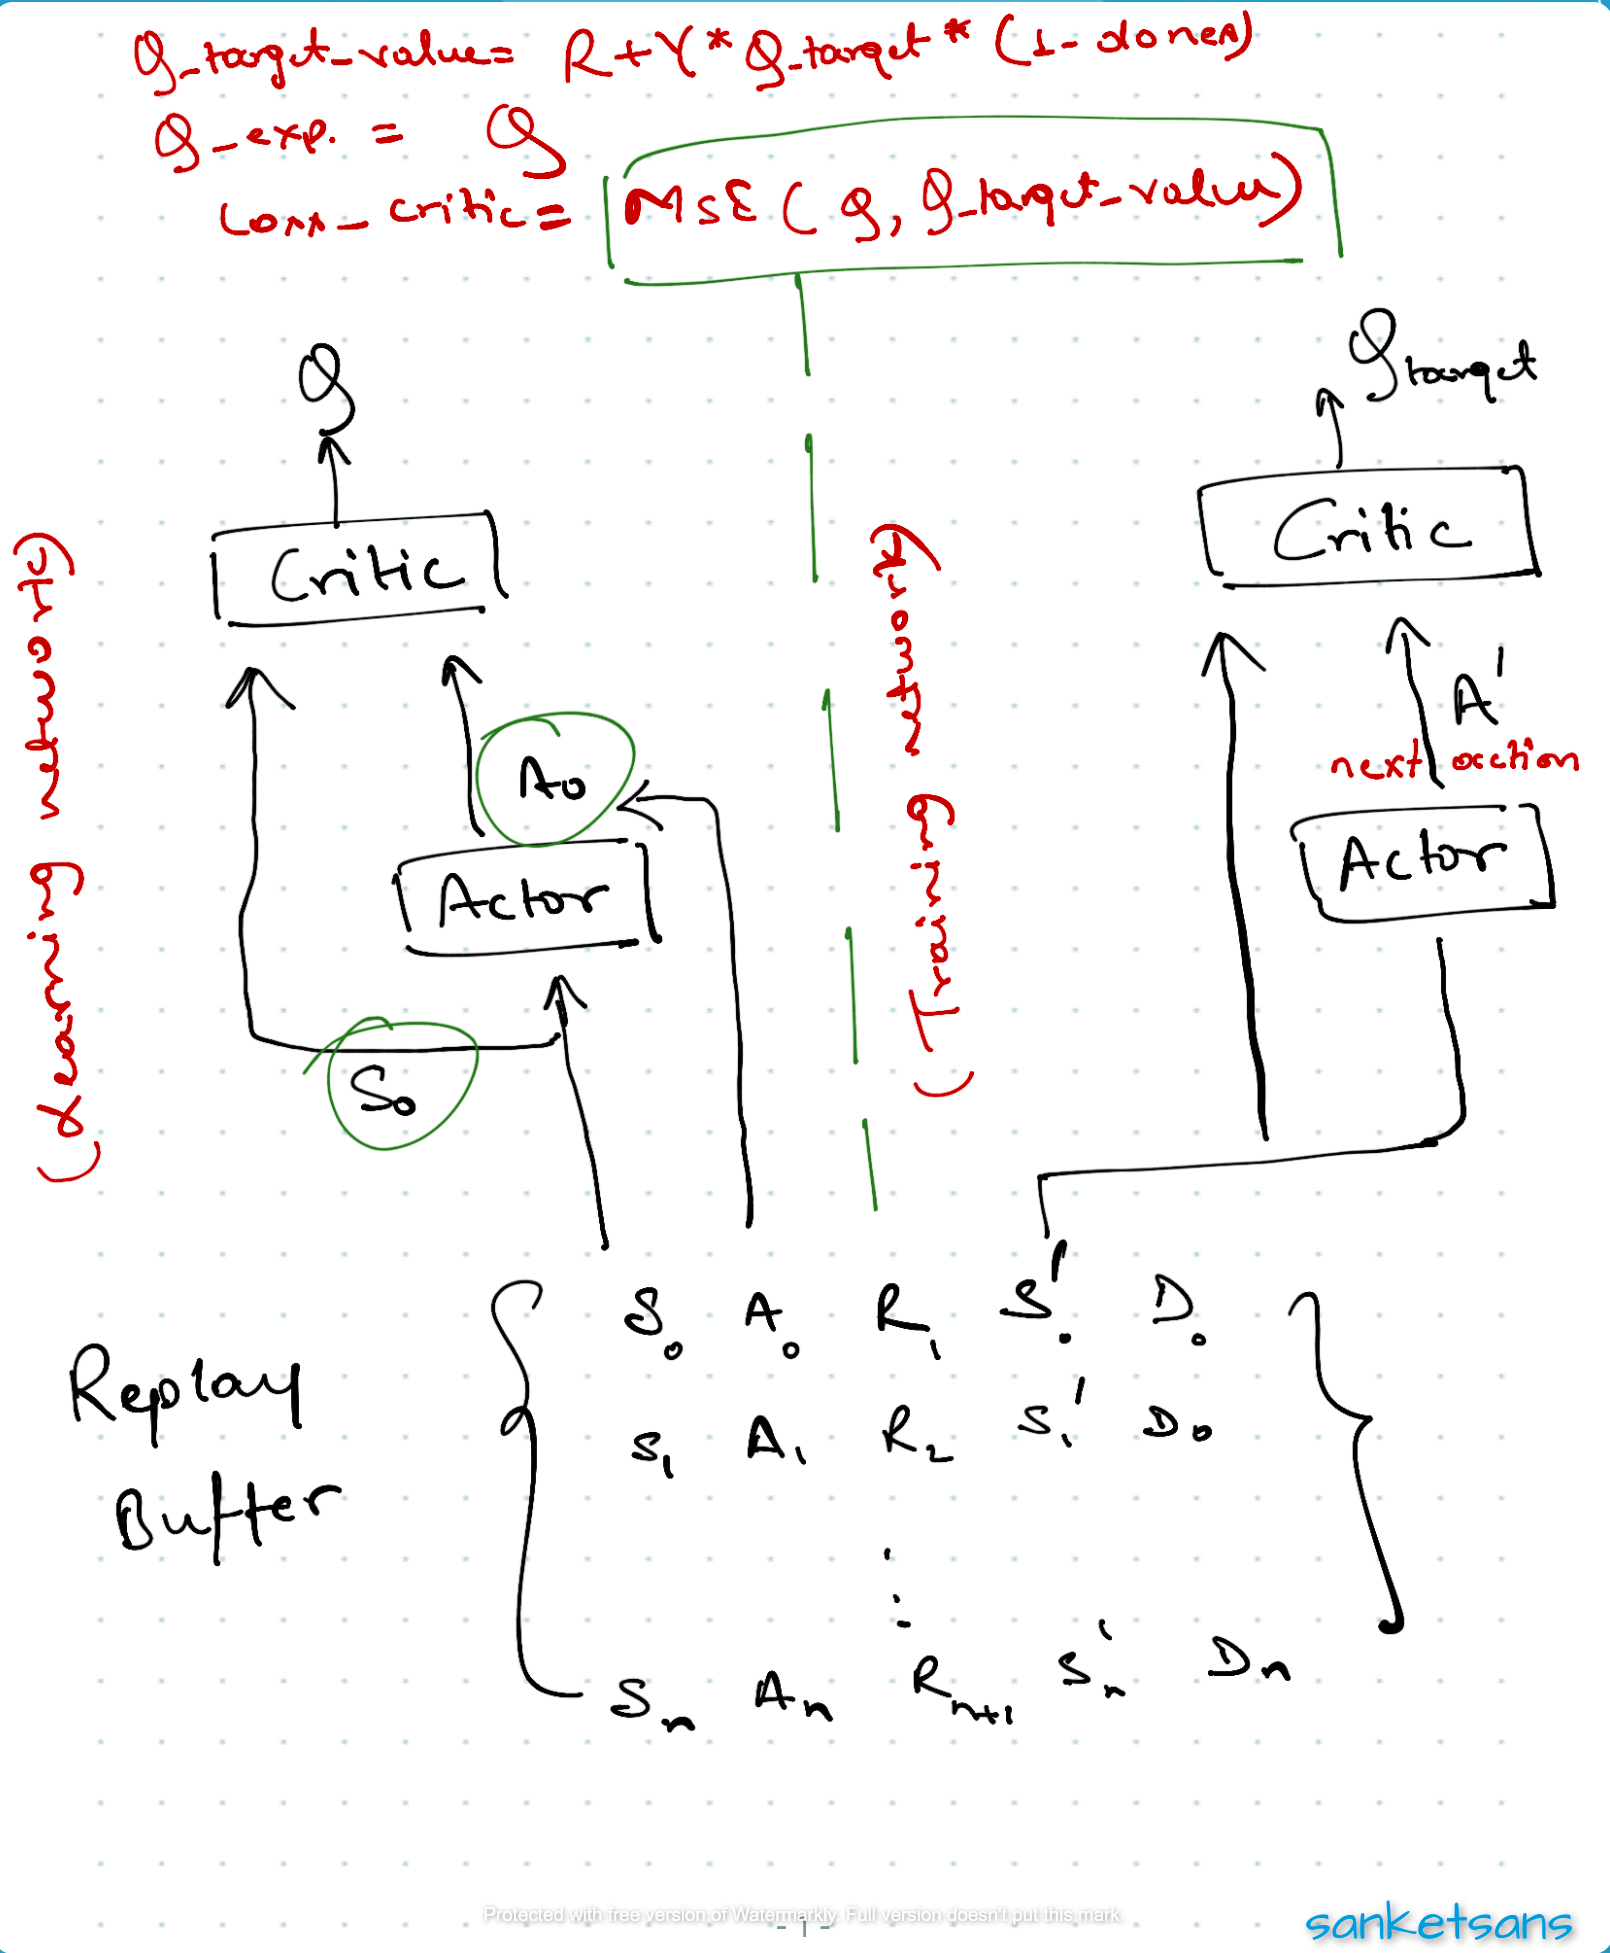 Q_target_value= R+γ*Q_target*(1-dones)
Q_exp. = Q
Loss_critic= MSE(Q, Q_target_value)
Q
Qtarget
Critic
Critic
(Learning network)
(Training network)
A0
A'
next action
Actor
Actor
S0
Replay
Buffer
S0 A0 R1 S'0 D0
S1 A1 R2 S'1 D0
Sn An Rn+1 S'n Dn
Protected with free version of Watermarkly. Full version doesn't put this mark.
- 1 -
sanketsans